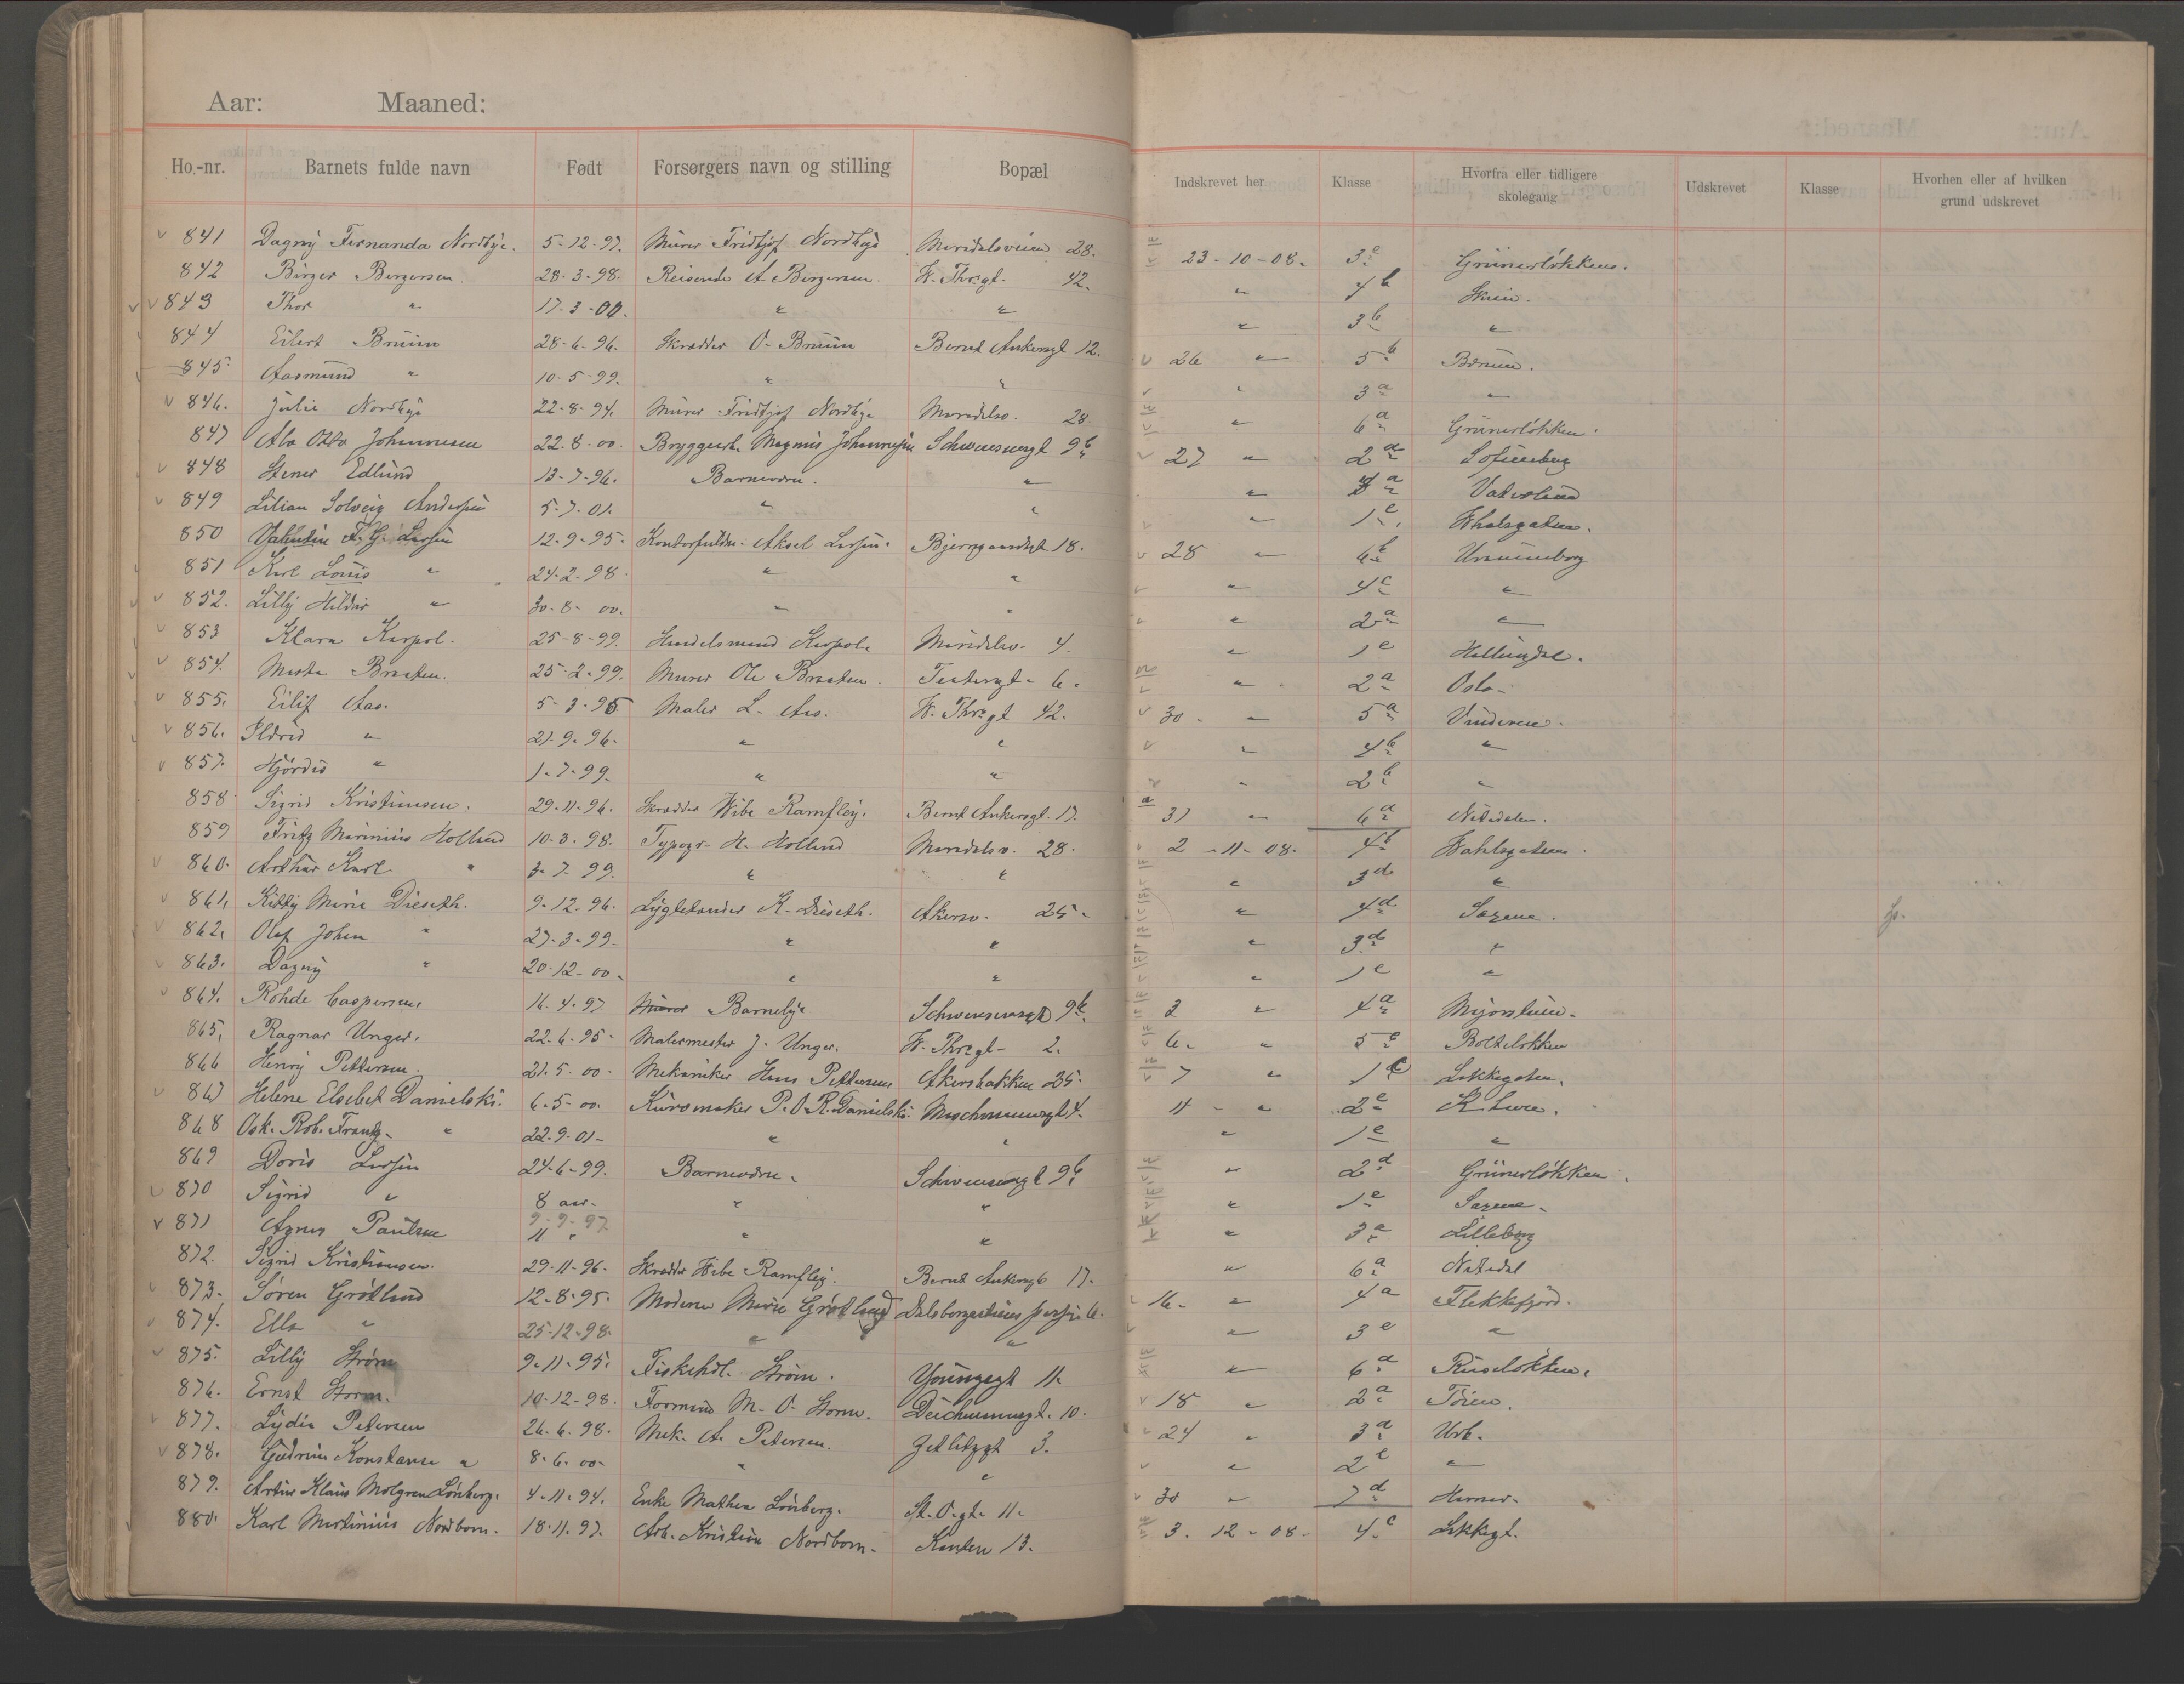 Aar: Maaned:
Ho.-nr. Barnets fulde navn Født Forsørgers navn og stilling Bopæl Indskrevet her Klasse Hvorfra eller tidligere skolegang Udskrevet Klasse Hvorhen eller af hvilken grund udskrevet
841 Dagny Fernanda Nordbye. 5-12-97. Murer Fridtjof Nordbye Maridalsveien 28. 23-10-08. 3e Grünerløkkens.
842 Birger Borgersen 28-3-98. Reisende A. Borgersen. W. Thr.gt. 42. " 4b Skien.
843 Thor " 17-3-00. " " " 3b "
844 Eilert Bruun 28-6-96. Skrædder O. Bruun Bernt Ankersgt 12. 26 " 5b
845 Aasmund " 10-5-99. " " " 3a "
846. Julie Nordbye 22-8-94. Murer Fridtjof Nordbye Maridalsv. 28. " 6a Grünerløkken.
847 Otto Johannesen 22.8.00. Magnus Johannesen Schwensensgt 9b 27 " 2a Sofienberg
848 Stener Edlund 13-7-96. " " a Vaterland
849 Lilian Solveig Andersen 5-7-01. " " " 1e
850 Valentin F. G. Larsen 12-9-95. Aksel Larsen. Bjerregaardsgt 18. 28 " 6b Uranienborg
851 Karl Louis " 24-2-98. " " " 4c "
852. Lilly Hildur " 30-8-00. " " " 2a "
853 Klara Karpol. 25-8-99. Handelsmand Karpol. Maridalsv. 4. " 1e Hallingdal.
854. Marta Braaten. 25-2-99. Murer Ole Braaten. Testesgt. 6. " 2a Oslo.
855. Eilif Aas. 5-3-95 Maler L. Aas. W. Thr.gt 42. 30. " 5a Vinderen.
856. " 21-9-96. " " " 4b "
857. Hjördis " 1-7-99. " " " 2b "
858 Sigrid Kristiansen. 29-11-96. Skrædder Wibe Ramfley. Bernt Ankersgt. 17. 31 " 6a Nitedalen.
859 Fritz Marinius Holland 10-3-98. Typogr. H. Holland Maridalsv. 28. 2-11-08. 4b
860. Arthur Karl " 3-7-99. " " " 3d "
861, Kitty Marie Dieseth. 9-12-96. Lygtetænder K. Dieseth. Akersv. 25. " 4d Sagene.
862. Olaf Johan " 27-3-99. " " " 3d "
863. Dagny " 20-12-00. " " " 1e "
864. Rohde Caspersen, 16-4-97 Barnebye Schwensensgt 9b. 3 " 4a Majorstuen.
865, Ragnar Unger. 22-6-95. Malermester J. Unger. W. Thr.gt. 2. 6. " 5e Bolteløkken
866 Henry Pettersen. 21.5.00. Mekaniker Hans Pettersen Akersbakken 25. 7 " 1c Løkkegaten.
867 Helene Elsebet Danielski. 6-5-00. Kurvmaker P. O. R. Danielski. 4. 11 - " 2e
868 Osk. Rob. Frantz. " 22-9-01. " " " 1e "
869 Doris Larsen 24-6-99. Schwensensgt 9b. " 2d Grünerløkken.
870 Sigrid " 8 aar. " " " 1e Sagene.
871 Agnes Paulsen 9-9-97 11 " " " " 3a Lilleborg
872. Sigrid Kristiansen. 29-11-96. Skrædder Wibe Ramfley. Bernt Ankersgt 17. " 6a Nitedal
873. Søren Grøtland 12-8-95. Moderen Marie Grøtland 6. 16. " 4a Flekkefjord.
874. Ella " 25-12-98. " " " 3e "
875. Lilly Strøm 9-11-95. Fiskehdl. Strøm. Youngsgt 11. " 6a Ruseløkken.
876. Ernst Storm. 10-12-98. Formand M. O. Storm. Deichmansgt. 10. 18 " 2a Tøien.
877. Lydia Petersen 26.6.98. Mek. A. Petersen. Zetlitzgt 3. 24 " 3d Urb.
878. Gudrun Konstanse " 8-6-00. " " " 2e "
879. Artur Klaus Molgren Lönberg. 4-11-94. Enke Mathea Lönberg. St. O.gt. 11. 30 " 7d Hamar.
880. Karl Martinius Nordbom. 18-11-97. Arb. Kristian Nordbom. Kanten 13. 3. 12-08. 4c Løkkegt.